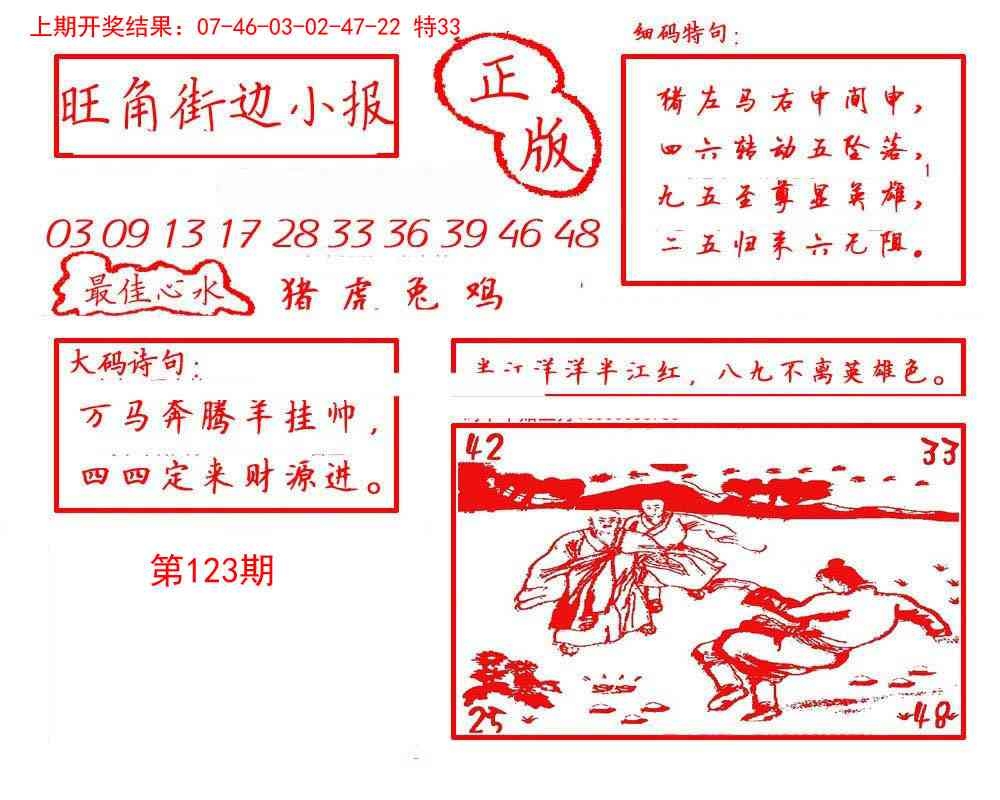 上期开奖结果：07-46-03-02-47-22 特33
旺角街边小报
正版
细码特句：
猪左马右中间申，
四六转动五坠落，
九五至尊显英雄，
二五归来六无阻。
1
03 09 13 17 28 33 36 39 46 48
最佳心水
猪虎兔鸡
大码诗句：
万马奔腾羊挂帅，
四四定来财源进。
洋洋半江红，八九不离英雄色。
42
33
25
48
第123期